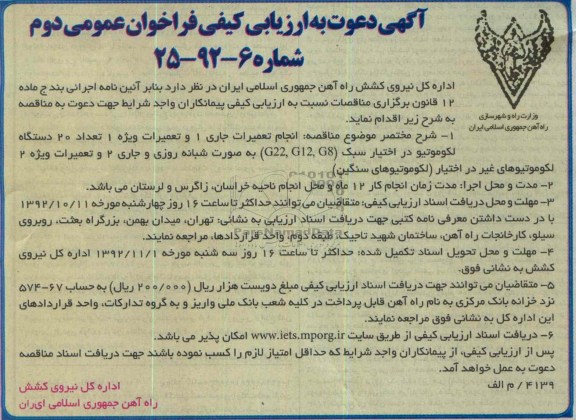 آگهی دعوت به ارزیابی کیفی فراخوان عمومی دوم
شماره ۶-۹۲-۲۵
وزارت راه و شهرسازی
راه آهن جمهوری اسلامی ایران
اداره کل نیروی کشش راه آهن جمهوری اسلامی ایران در نظر دارد بنابر آئین نامه اجرائی بند ج ماده
۱۲ قانون برگزاری مناقصات نسبت به ارزیابی کیفی پیمانکاران واجد شرایط جهت دعوت به مناقصه
به شرح زیر اقدام نماید.
۱- شرح مختصر موضوع مناقصه: انجام تعمیرات جاری ۱ و تعمیرات ویژه ۱ تعداد ۲۰ دستگاه
لکوموتیو در اختیار سبک (G22, G12, G8) به صورت شبانه روزی و جاری ۲ و تعمیرات ویژه ۲
لکوموتیوهای غیر در اختیار (لکوموتیوهای سنگین)
۲- مدت و محل اجرا: مدت زمان انجام کار ۱۲ ماه و محل انجام ناحیه خراسان، زاگرس و لرستان می باشد.
۳- مهلت و محل دریافت اسناد ارزیابی کیفی: متقاضیان می توانند حداکثر تا ساعت ۱۶ روز چهارشنبه مورخه ۱۳۹۲/۱۰/۱۱
با در دست داشتن معرفی نامه کتبی جهت دریافت اسناد ارزیابی به نشانی: تهران، میدان بهمن، بزرگراه بعثت، روبروی
سیلو، کارخانجات راه آهن، ساختمان شهید تاجیک، طبقه دوم، واحد قراردادها، مراجعه نمایند.
۴- مهلت و محل تحویل اسناد تکمیل شده: حداکثر تا ساعت ۱۶ روز سه شنبه مورخه ۱۳۹۲/۱۱/۱ اداره کل نیروی
کشش به نشانی فوق.
۵- متقاضیان می توانند جهت دریافت اسناد ارزیابی کیفی مبلغ دویست هزار ریال (۲۰۰/۰۰۰ ریال) به حساب ۶۷-۵۷۴
نزد خزانه بانک مرکزی به نام راه آهن قابل پرداخت در کلیه شعب بانک ملی واریز و به گروه تدارکات، واحد قراردادهای
این اداره کل به نشانی فوق مراجعه نمایند.
۶- دریافت اسناد ارزیابی کیفی از طریق سایت www.iets.mporg.ir امکان پذیر می باشد.
پس از ارزیابی کیفی، از پیمانکاران واجد شرایط که حداقل امتیاز لازم را کسب نموده باشند جهت دریافت اسناد مناقصه
دعوت به عمل خواهد آمد.
۴۱۳۹ / م الف
اداره کل نیروی کشش
راه آهن جمهوری اسلامی ایران